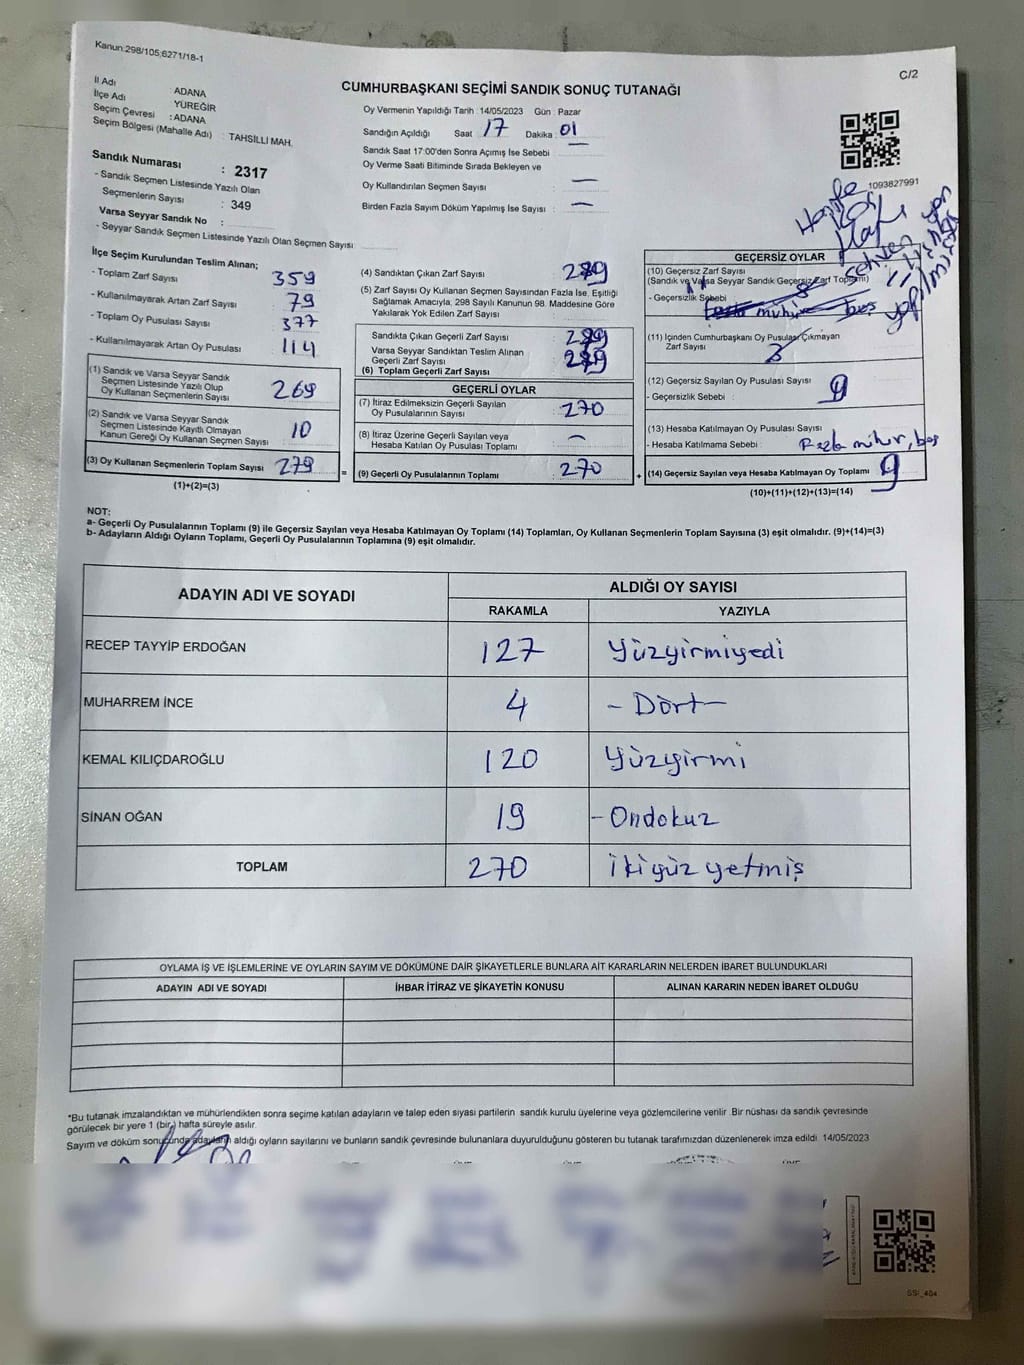 Kanun:298/105,6271/18-1
C/2
CUMHURBAŞKANI SEÇİMİ SANDIK SONUÇ TUTANAĞI
İl Adı : ADANA
İlçe Adı : YÜREĞİR
Seçim Çevresi : ADANA
Seçim Bölgesi (Mahalle Adı) : TAHSİLLİ MAH.
Sandık Numarası : 2317
- Sandık Seçmen Listesinde Yazılı Olan
Seçmenlerin Sayısı : 349
Varsa Seyyar Sandık No :
- Seyyar Sandık Seçmen Listesinde Yazılı Olan Seçmen Sayısı
Oy Vermenin Yapıldığı Tarih : 14/05/2023 Gün : Pazar
Sandığın Açıldığı Saat 17 Dakika : 01
Sandık Saat 17:00'den Sonra Açımış İse Sebebi : —
Oy Verme Saati Bitiminde Sırada Bekleyen ve
Oy Kullandırılan Seçmen Sayısı : —
Birden Fazla Sayım Döküm Yapılmış İse Sayısı : —
1093827991
İlçe Seçim Kurulundan Teslim Alınan;
- Toplam Zarf Sayısı : 359
- Kullanılmayarak Artan Zarf Sayısı : 79
- Toplam Oy Pusulası Sayısı : 377
- Kullanılmayarak Artan Oy Pusulası : 114
(1) Sandık ve Varsa Seyyar Sandık
Seçmen Listesinde Yazılı Olup
Oy Kullanan Seçmenlerin Sayısı : 269
(2) Sandık ve Varsa Seyyar Sandık
Seçmen Listesinde Kayıtlı Olmayan
Kanun Gereği Oy Kullanan Seçmen Sayısı : 10
(3) Oy Kullanan Seçmenlerin Toplam Sayısı : 279
(1)+(2)=(3)
(4) Sandıktan Çıkan Zarf Sayısı : 279
(5) Zarf Sayısı Oy Kullanan Seçmen Sayısından Fazla İse, Eşitliği
Sağlamak Amacıyla, 298 Sayılı Kanunun 98. Maddesine Göre
Yakılarak Yok Edilen Zarf Sayısı :
Sandıkta Çıkan Geçerli Zarf Sayısı : 279
Varsa Seyyar Sandıktan Teslim Alınan
Geçerli Zarf Sayısı :
(6) Toplam Geçerli Zarf Sayısı : 279
GEÇERLİ OYLAR
(7) İtiraz Edilmeksizin Geçerli Sayılan
Oy Pusulalarının Sayısı : 270
(8) İtiraz Üzerine Geçerli Sayılan veya
Hesaba Katılan Oy Pusulası Toplamı : —
= (9) Geçerli Oy Pusulalarının Toplamı : 270 +
GEÇERSİZ OYLAR
(10) Geçersiz Zarf Sayısı
(Sandık ve Varsa Seyyar Sandık Geçersiz Zarf Toplamı)
- Geçersizlik Sebebi :
(11) İçinden Cumhurbaşkanı Oy Pusulası Çıkmayan
Zarf Sayısı
(12) Geçersiz Sayılan Oy Pusulası Sayısı : 9
- Geçersizlik Sebebi :
(13) Hesaba Katılmayan Oy Pusulası Sayısı :
- Hesaba Katılmama Sebebi : Fazla mühür, boş
(14) Geçersiz Sayılan veya Hesaba Katılmayan Oy Toplamı : 9
(10)+(11)+(12)+(13)=(14)
NOT:
a- Geçerli Oy Pusulalarının Toplamı (9) ile Geçersiz Sayılan veya Hesaba Katılmayan Oy Toplamı (14) Toplamları, Oy Kullanan Seçmenlerin Toplam Sayısına (3) eşit olmalıdır. (9)+(14)=(3)
b- Adayların Aldığı Oyların Toplamı, Geçerli Oy Pusulalarının Toplamına (9) eşit olmalıdır.
ADAYIN ADI VE SOYADI
ALDIĞI OY SAYISI
RAKAMLA YAZIYLA
RECEP TAYYİP ERDOĞAN 127 Yüzyirmiyedi
MUHARREM İNCE 4 - Dört -
KEMAL KILIÇDAROĞLU 120 Yüzyirmi
SİNAN OĞAN 19 - Ondokuz
TOPLAM 270 İkiyüz yetmiş
OYLAMA İŞ VE İŞLEMLERİNE VE OYLARIN SAYIM VE DÖKÜMÜNE DAİR ŞİKAYETLERLE BUNLARA AİT KARARLARIN NELERDEN İBARET BULUNDUKLARI
ADAYIN ADI VE SOYADI İHBAR İTİRAZ VE ŞİKAYETİN KONUSU ALINAN KARARIN NEDEN İBARET OLDUĞU
*Bu tutanak imzalandıktan ve mühürlendikten sonra seçime katılan adayların ve talep eden siyasi partilerin sandık kurulu üyelerine veya gözlemcilerine verilir. Bir nüshası da sandık çevresinde
görülecek bir yere 1 (bir) hafta süreyle asılır.
Sayım ve döküm sonucunda adayların aldığı oyların sayılarını ve bunların sandık çevresinde bulunanlara duyurulduğunu gösteren bu tutanak tarafımızdan düzenlenerek imza edildi. 14/05/2023
SSİ_404